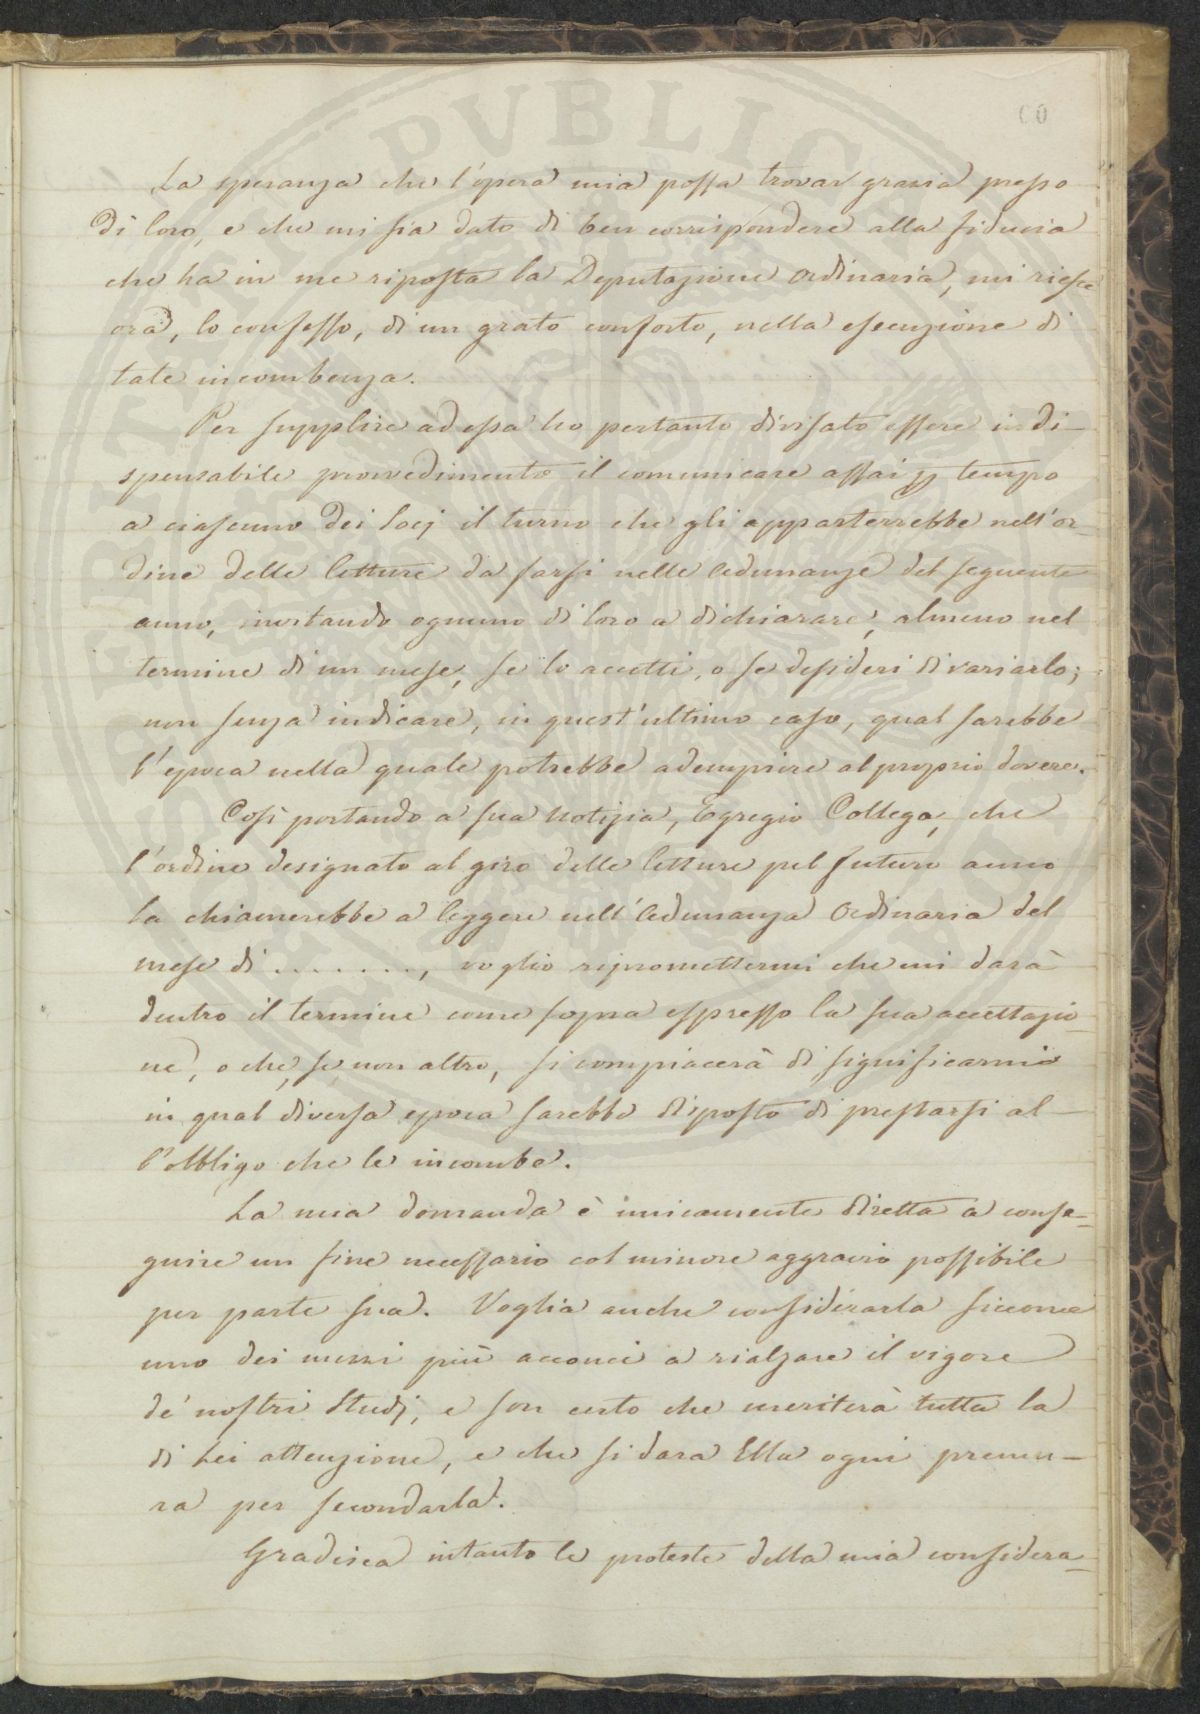 60
La speranza che l'opera mia possa trovar grazia presso
di loro, e che mi sia dato di ben corrispondere alla fiducia
che ha in me riposta la Deputazione Ordinaria, mi riesce
ora, lo confesso, di un grato conforto, nella esecuzione di
tale incombenza.
Per supplire ad essa ho pertanto divisato essere indi-
spensabile provvedimento il comunicare assai tempo
a ciascuno dei Socj il turno che gli apparterrebbe nell'or-
dine delle letture da farsi nelle Adunanze del seguente
anno, invitando ognuno di loro a dichiarare, almeno nel
termine di un mese, se lo accetti, o se desideri di variarlo;
non senza indicare, in quest'ultimo caso, qual sarebbe
l'epoca nella quale potrebbe adempiere al proprio dovere.
Così portando a sua notizia, Egregio Collega, che
l'ordine designato al giro delle letture pel futuro anno
la chiamerebbe a leggere nell'Adunanza Ordinaria del
mese di ........, voglio ripromettermi che mi darà
dentro il termine come sopra espresso la sua accettazio-
ne, o che, se non altro, si compiacerà di significarmi
in qual diversa epoca sarebbe disposto di prestarsi al-
l'obbligo che le incombe.
La mia domanda è unicamente diretta a conse-
guire un fine necessario col minore aggravio possibile
per parte sua. Voglia anche considerarla siccome
uno dei mezzi più acconci a rialzare il vigore
de' nostri Studj, e son certo che meriterà tutta la
di Lei attenzione, e che si darà Ella ogni premu-
ra per secondarla.
Gradisca intanto le proteste della mia considera-
PVBLICA